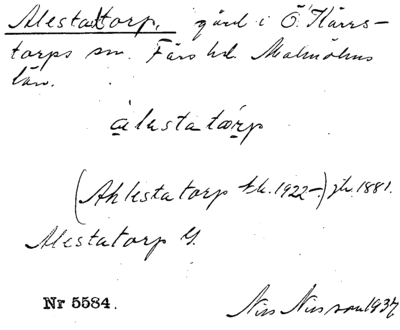 Alestatorp, gård i Ö. Kärrs-
torps sn. Färs hd. Malmöhus
län.
a̱lestatœ́rp
(Ahlestatorp tk. 1922–) jb. 1881.
Alestatorp G.
Nr 5584. Nils Nilsson 1937